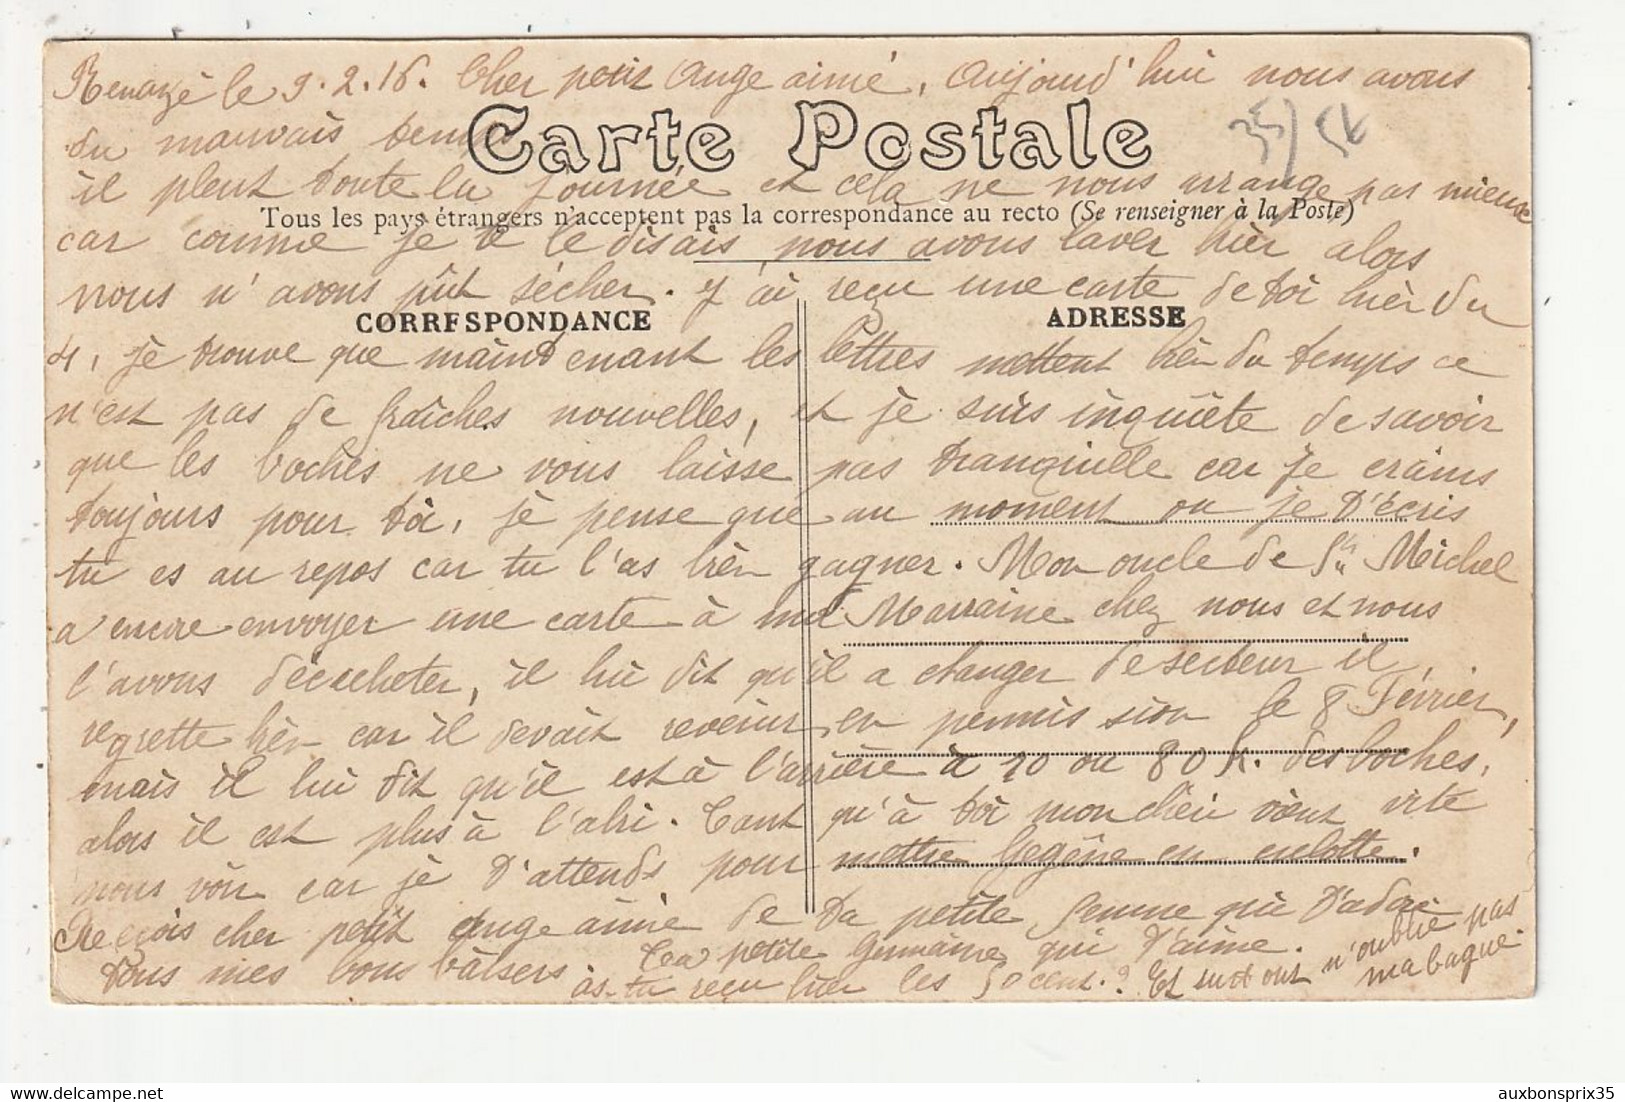 Renazé le 9.2.16. Cher petit Ange aimé, Aujourd'hui nous avons
du mauvais temps
Carte Postale
il pleut toute la journée et cela ne nous arrange pas mieux
Tous les pays étrangers n'acceptent pas la correspondance au recto (Se renseigner à la Poste)
car comme je te le disais, nous avons laver hièr alors
nous n'avons pût sécher. J'ai reçu une carte de toi hièr du
CORRESPONDANCE
ADRESSE
4, je trouve que maintenant les lettres mettent bièn du temps ce
n'est pas de fraîches nouvelles, et je suis inquiète de savoir
que les boches ne vous laisse pas tranquille car je crains
toujours pour toi, je pense que au moment ou je t'écris
tu es au repos car tu l'as bièn gagner. Mon oncle de St Michel
a encore envoyer une carte à ma Marraine chez nous et nous
l'avons décacheter, il lui dit qu'il a changer de secteur il
regrette bièn car il devait revenir en permission le 8 Février,
mais il lui dit qu'il est à l'arrière à 70 ou 80 k. des boches,
alors il est plus à l'abri. Tant qu'à toi mon dieu vient vite
nous voir car je t'attends pour mettre Gegène en culotte.
Reçois cher petit Ange aimé de ta petite femme qui t'adore
tous mes bons baisers. Ta petite Germaine qui t'aime.
as-tu reçu hier les 50 cent.? Et surtout n'oublie pas
ma bague.
auxbonsprix35